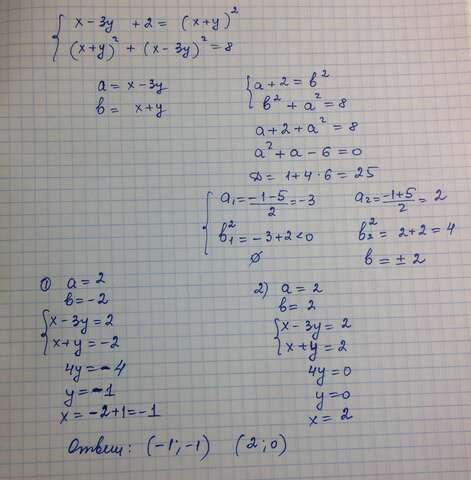 x - 3y + 2 = (x+y)²
(x+y)² + (x-3y)² = 8
a = x - 3y
b = x+y
a+2 = b²
b² + a² = 8
a+2+a² = 8
a² + a - 6 = 0
D = 1+4·6 = 25
a₁ = (-1-5)/2 = -3 a₂ = (-1+5)/2 = 2
b₁² = -3+2<0 b₂² = 2+2 = 4
∅ b = ± 2
① a = 2
b = -2
x - 3y = 2
x+y = -2
4y = -4
y = -1
x = -2+1 = -1
2) a = 2
b = 2
x - 3y = 2
x+y = 2
4y = 0
y = 0
x = 2
Ответ: (-1; -1) (2; 0)